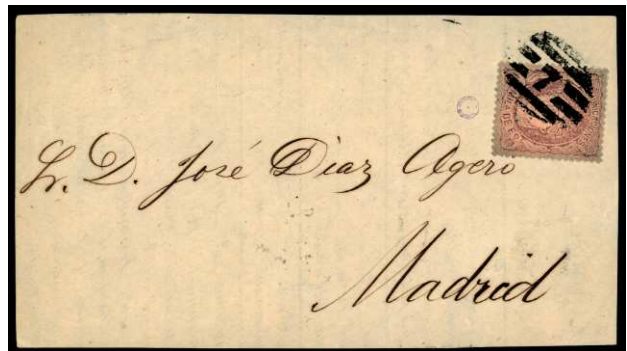 Sr. D. José Diaz Agero
Madrid
7